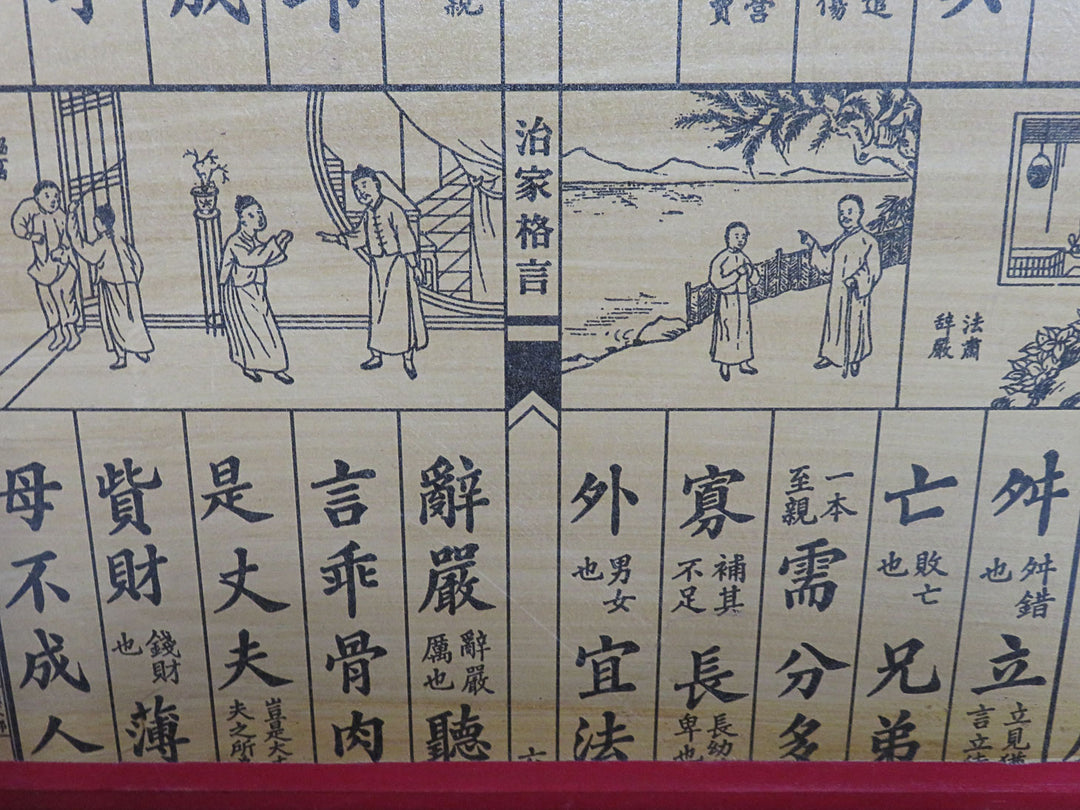 法肅
辞嚴
治家格言
舛舛錯也立立見
亡敗亡也兄弟
一本至親需分多
寡補其不足長長幼卑也
外男女也宜法
辭嚴辭嚴厲也聽
言乖骨肉
是丈夫豈是大夫之所
貲財錢財也薄
母不成人